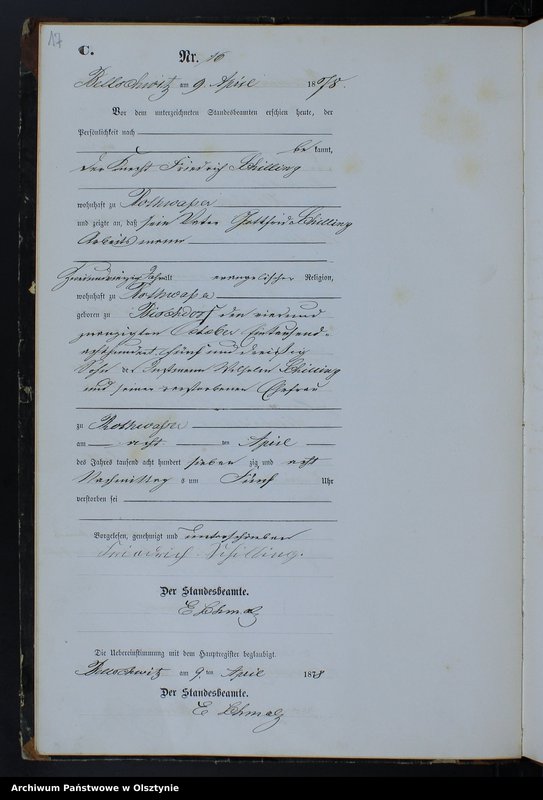 17
C.
Nr. 16
am 9. April 1878.
Vor dem unterzeichneten Standesbeamten erschien heute, der
Persönlichkeit nach
be kannt,
der Knecht Friedrich Schilling
wohnhaft zu Rothwasser
und zeigte an, daß sein Vater Gottfried Schilling
Arbeitsmann
alt evangelischer Religion,
wohnhaft zu Rothwasser
geboren zu Bischdorf den vierund
zwanzigsten October Eintausend-
achthundert fünf und dreißig
Sohn des Instmann Wilhelm Schilling
und seiner verstorbenen Ehefrau
zu Rothwasser
am acht ten April
des Jahres tausend acht hundert sieben zig und acht
Nachmittag s um Fünf Uhr
verstorben sei
Vorgelesen, genehmigt und unterschrieben
Friedrich Schilling.
Der Standesbeamte.
E Schmalz
Die Uebereinstimmung mit dem Hauptregister beglaubigt.
am 9. ten April 1878
Der Standesbeamte.
E Schmalz
Archiwum Państwowe w Olsztynie